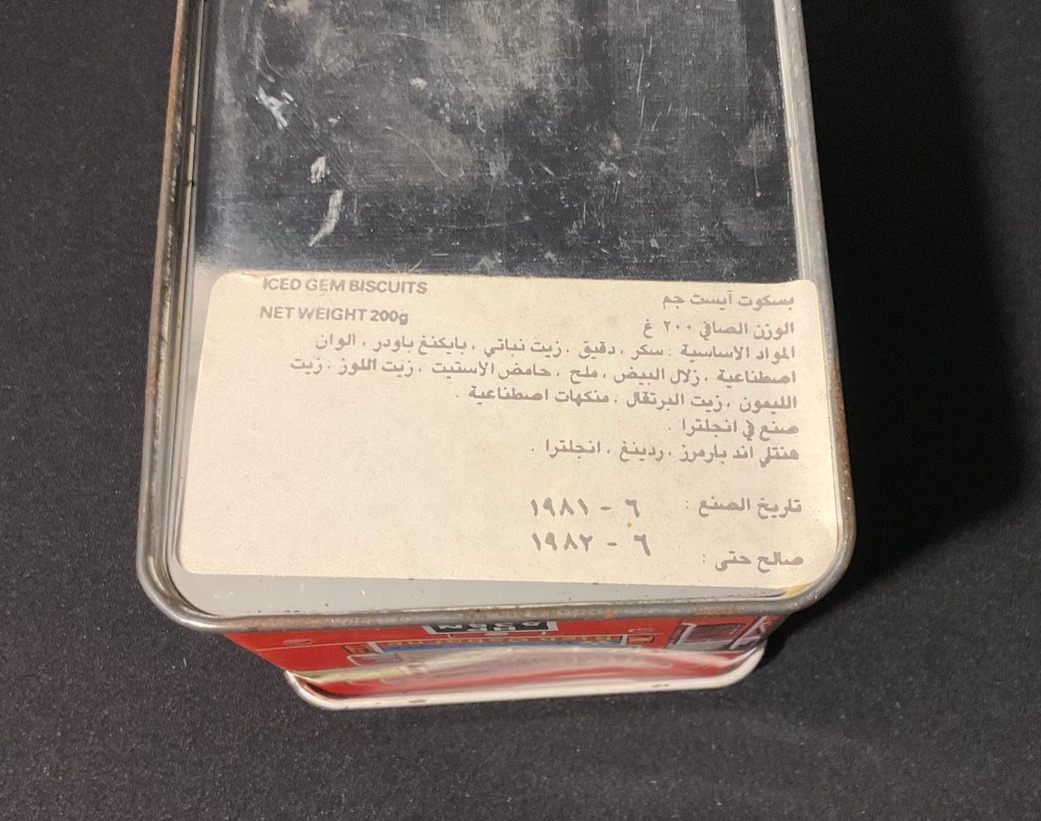 ICED GEM BISCUITS
NET WEIGHT 200g
بسكوت آيست جم
الوزن الصافي ٢٠٠ غ
المواد الاساسية : سكر ، دقيق ، زيت نباتي ، بايكنغ باودر ، الوان
اصطناعية ، زلال البيض ، ملح ، حامض الاستيت ، زيت اللوز ، زيت
الليمون ، زيت البرتقال ، منكهات اصطناعية .
صنع في انجلترا .
هنتلي اند بارمرز ، ردينغ ، انجلترا .
تاريخ الصنع : ٦ - ١٩٨١
صالح حتى : ٦ - ١٩٨٢